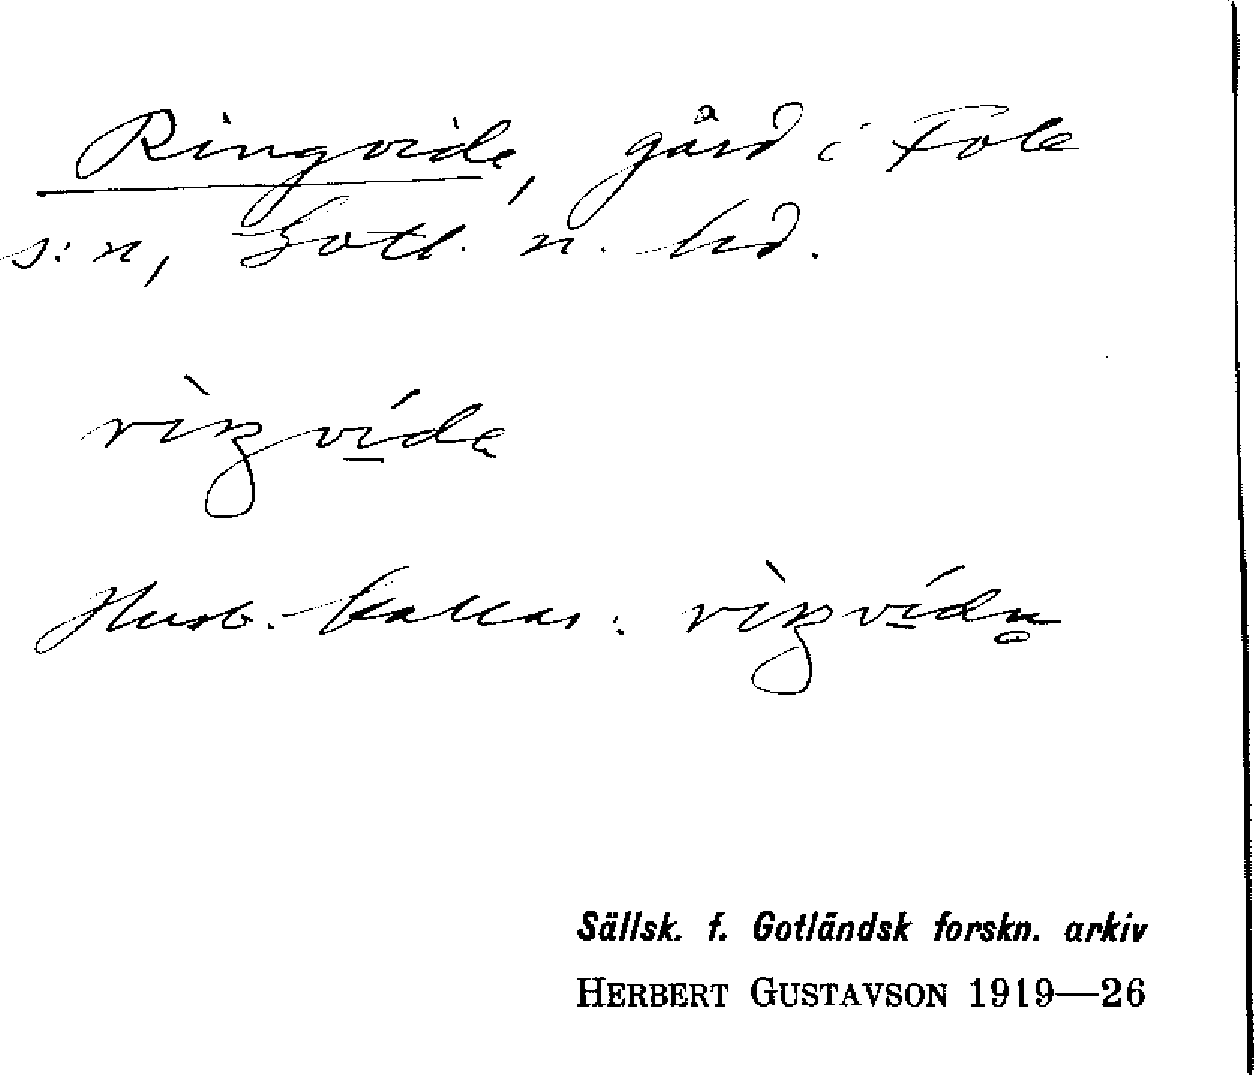 Ringvide, gård i Fole
s:n, Gotl. n. hd.
rìŋvı̲́de
Husb. kallas: rìŋvı̲́dn̥
Sällsk. f. Gotländsk forskn. arkiv
HERBERT GUSTAVSON 1919—26